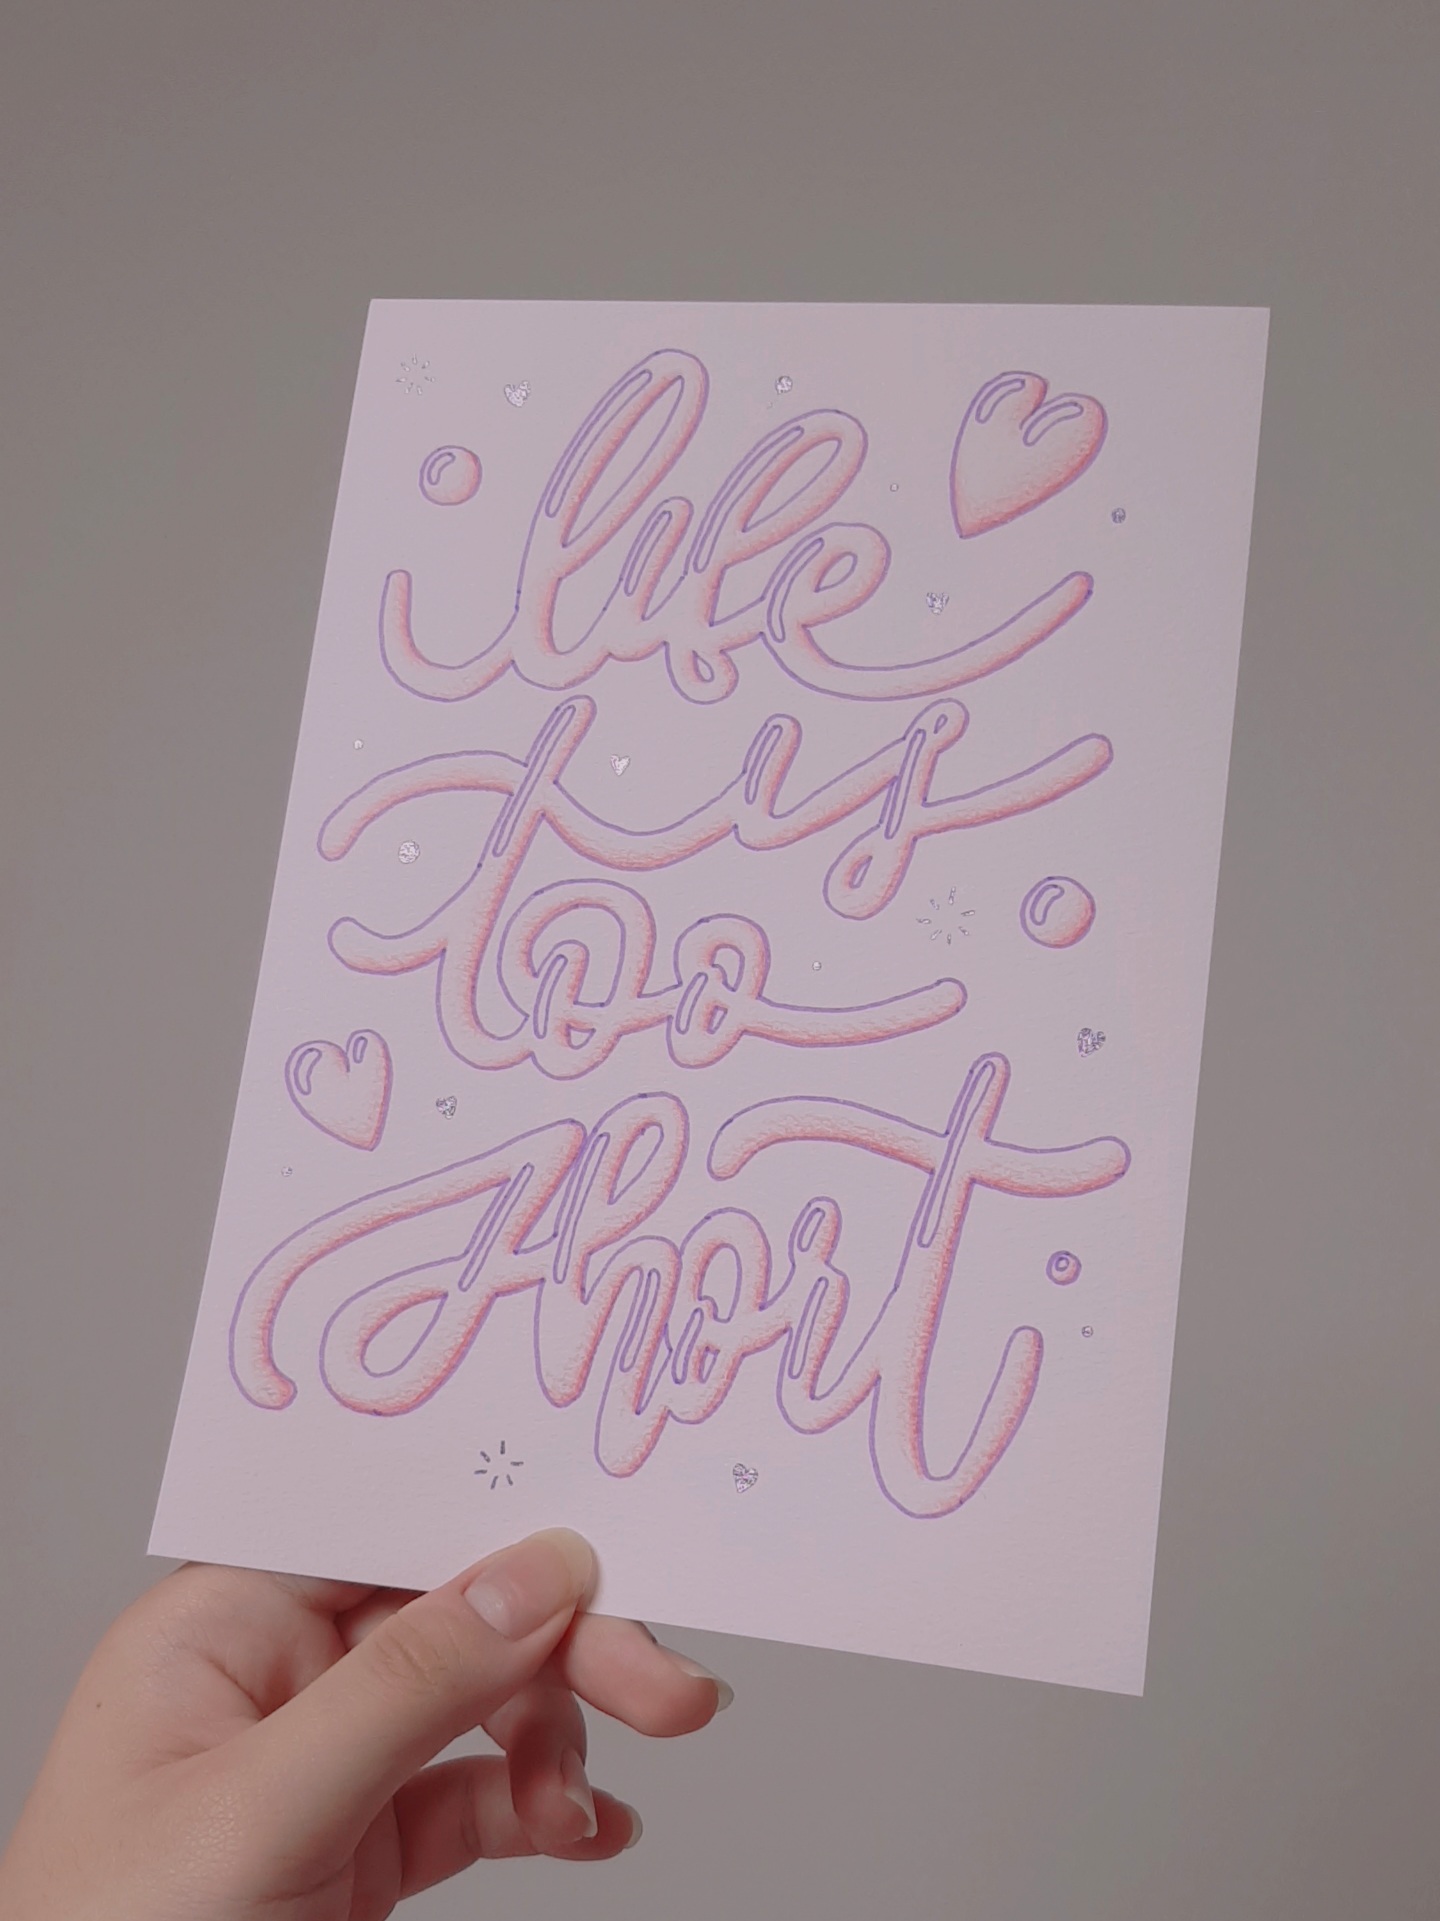 life
is
too
short